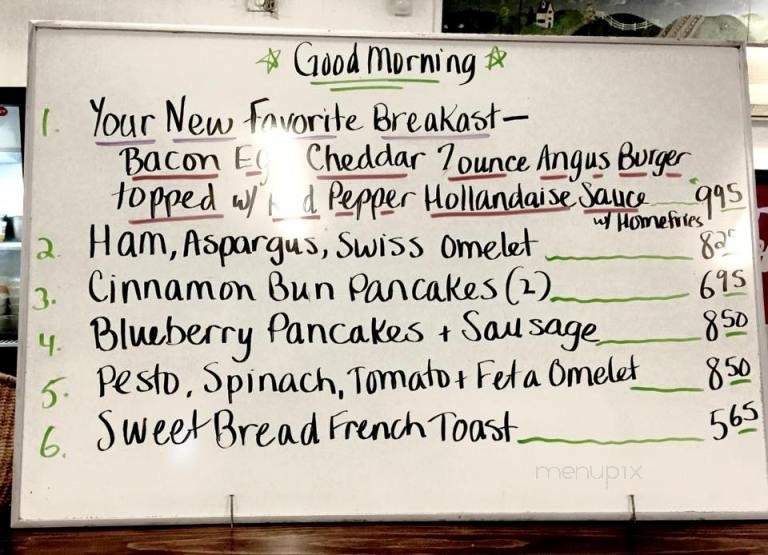 ☆ Good Morning ☆
1. Your New Favorite Breakast-
Bacon Egg Cheddar 7 ounce Angus Burger
topped w/ Red Pepper Hollandaise Sauce 995
w/ Homefries
2. Ham, Aspargus, Swiss Omelet 825
3. Cinnamon Bun Pancakes (2) 695
4. Blueberry Pancakes + Sausage 850
5. Pesto, Spinach, Tomato + Feta Omelet 850
6. Sweet Bread French Toast 565
menupix